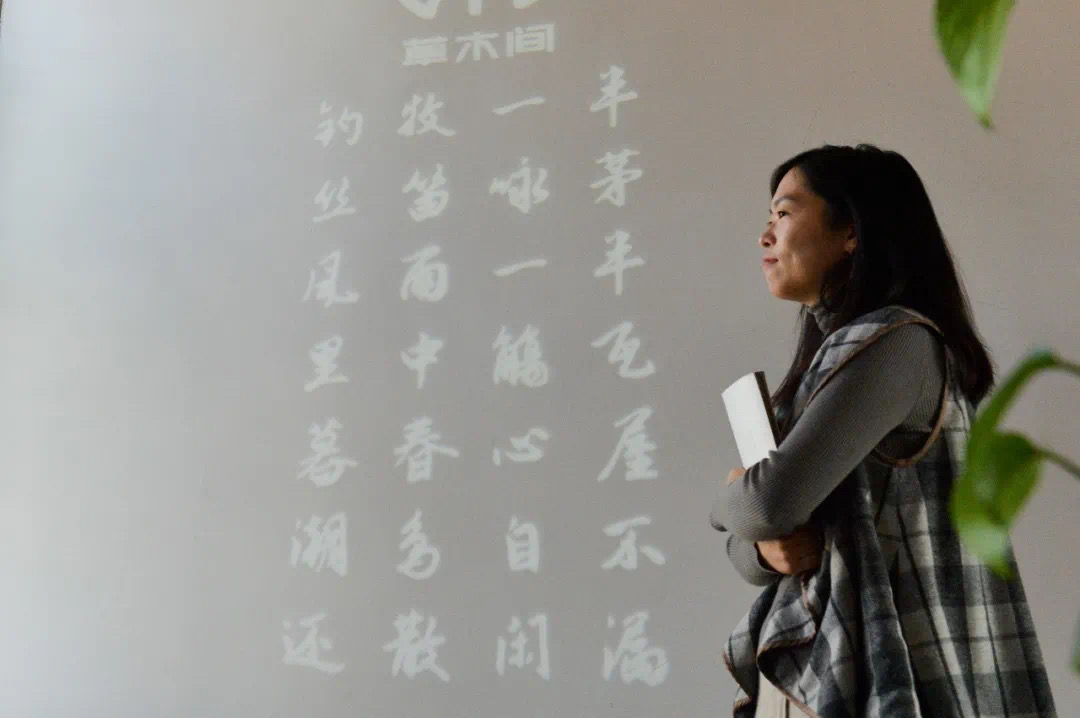 草木间
半茅半瓦屋不漏
一咏一觞心自闲
牧笛雨中春鸟散
钓丝风里暮潮还